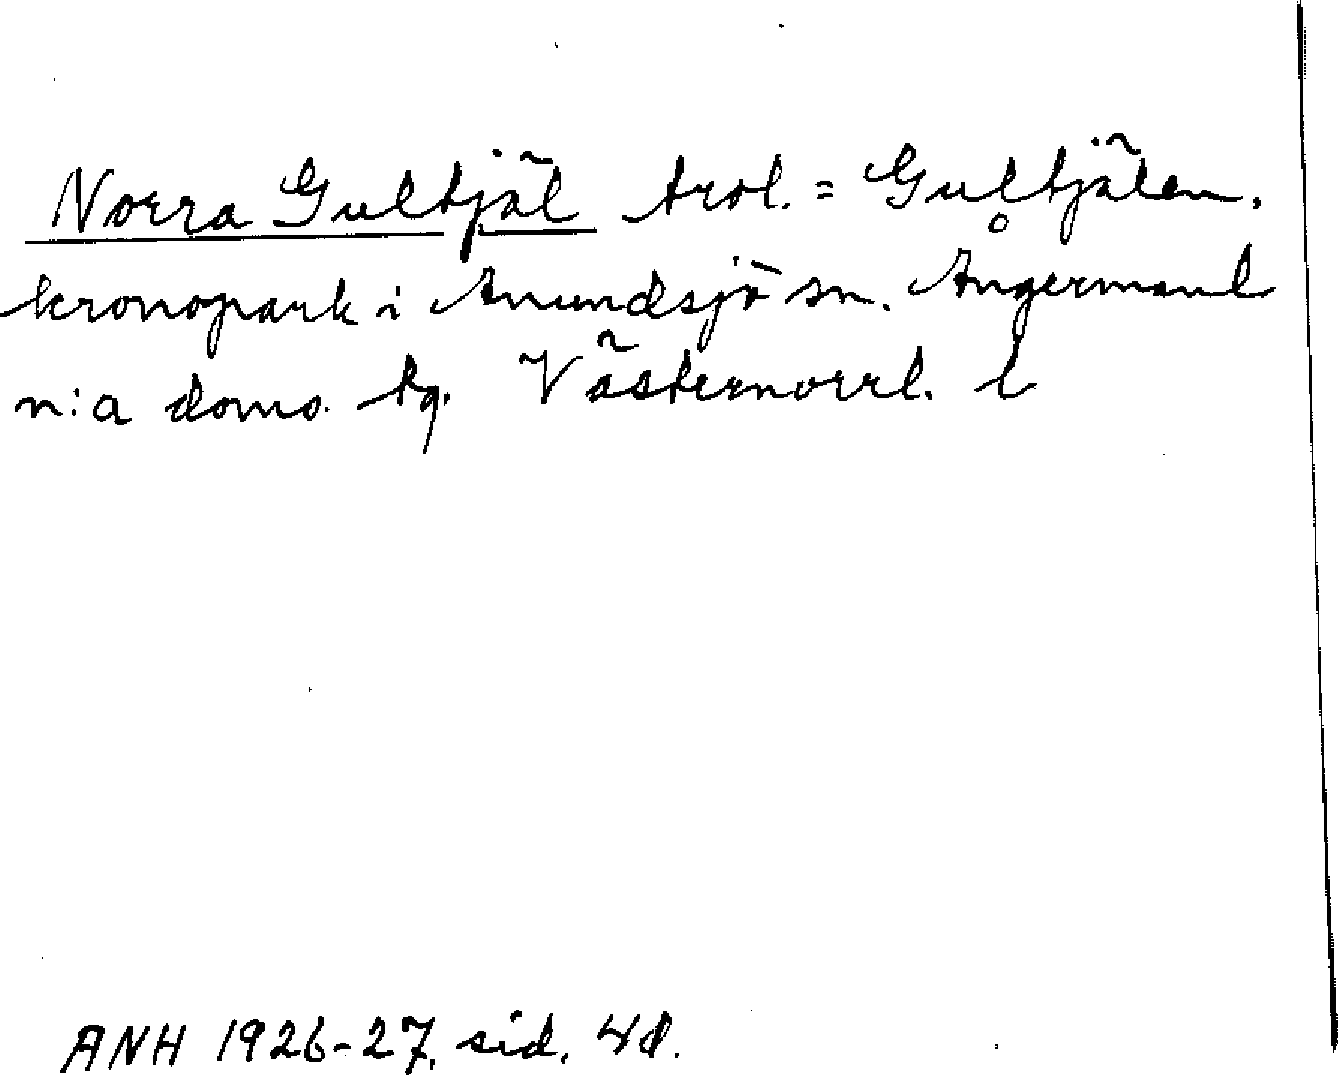 Norra Gultjäl trol. = Gultjälen.
kronopark i Anundsjö sn. Ångermanl
n:a domo. tg. Västernorrl. l
ANH 1926-27, sid.